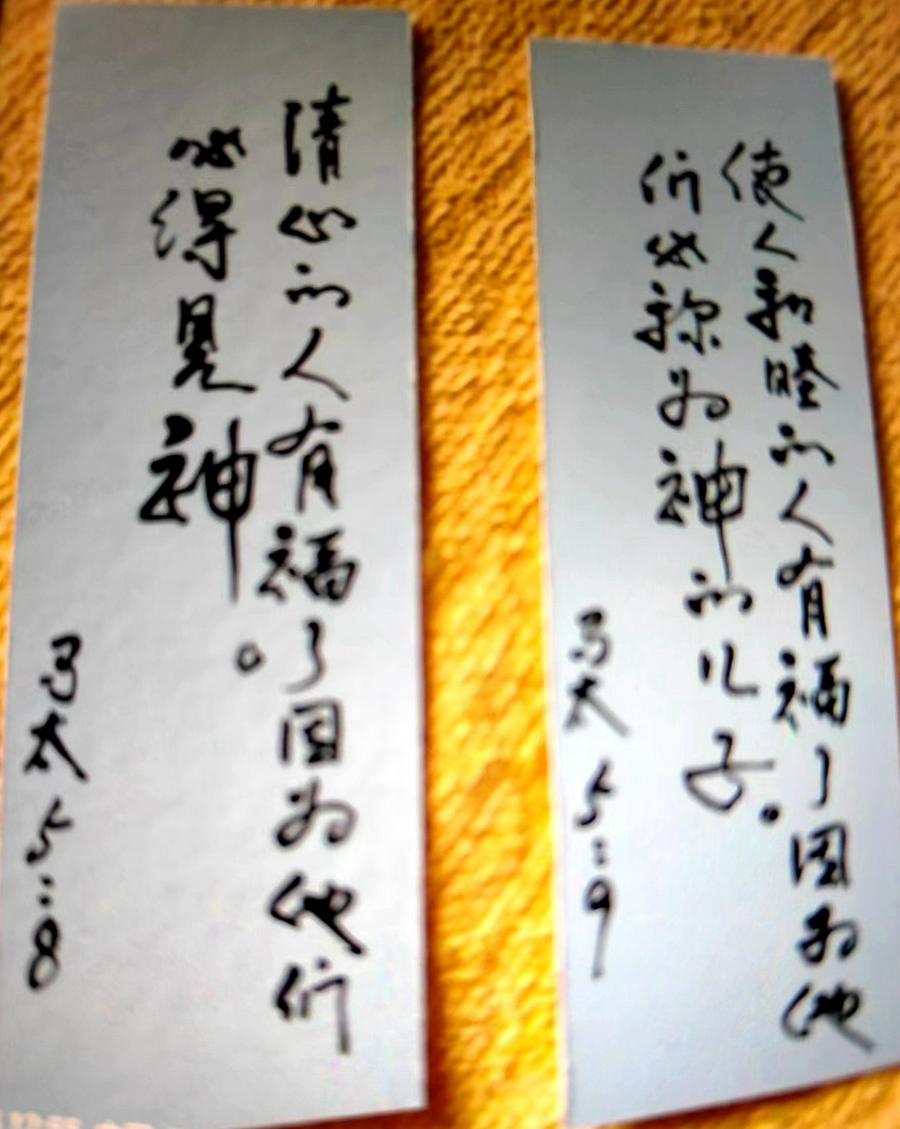 清心的人有福了因为他们
必得见神。
马太 5:8
使人和睦的人有福了因为他
们必称为神的儿子。
马太 5:9